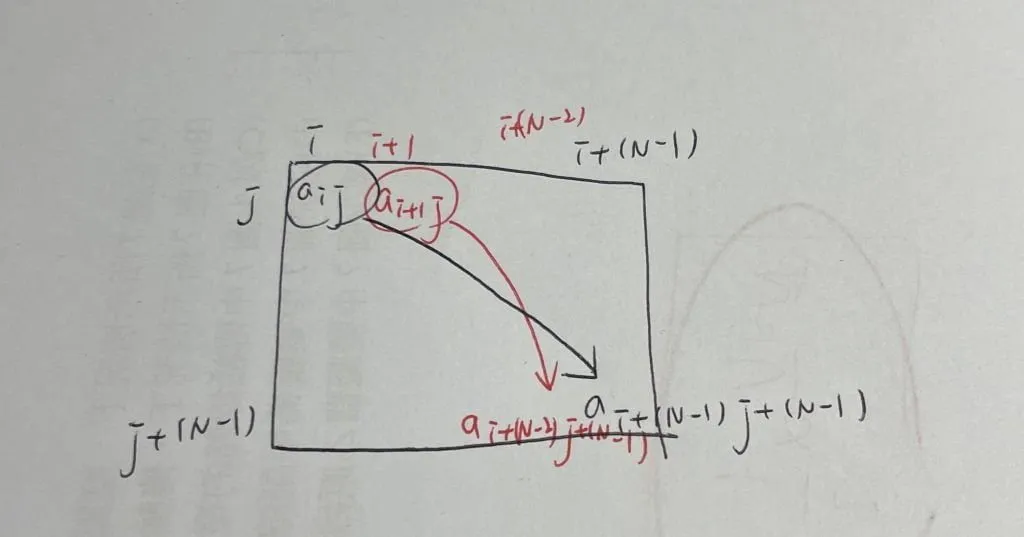 i i+1 i+(N-2) i+(N-1)
j a i j a i+1 j
j+(N-1) a i+(N-2) j+(N-1) a i+(N-1) j+(N-1)